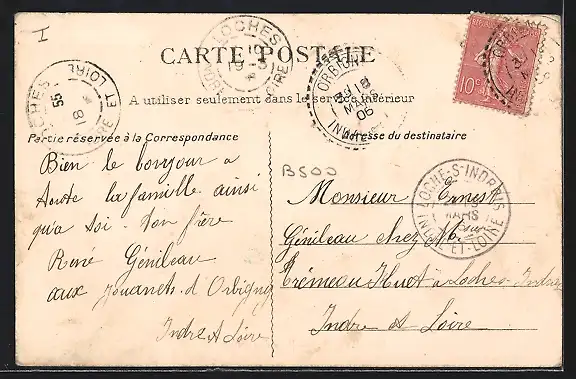 I
CARTE POSTALE
A utiliser seulement dans le service intérieur
Partie réservée à la Correspondance
Adresse du destinataire
B500
Bien le bonjour a
toute la famille ainsi
qu'a toi. ton frère
René Génileau
aux Jouanets. d'Orbigny
Indre & Loire
Monsieur Ernest
Génileau chez M.
Trémeau Huet à Loché
Indre & Loire
LOCHES
LOCHES
ET LOIRE
18
ORBIGNY
18
MARS
06
LOCHÉ-S-INDROIS
MARS
INDRE-ET-LOIRE
10c